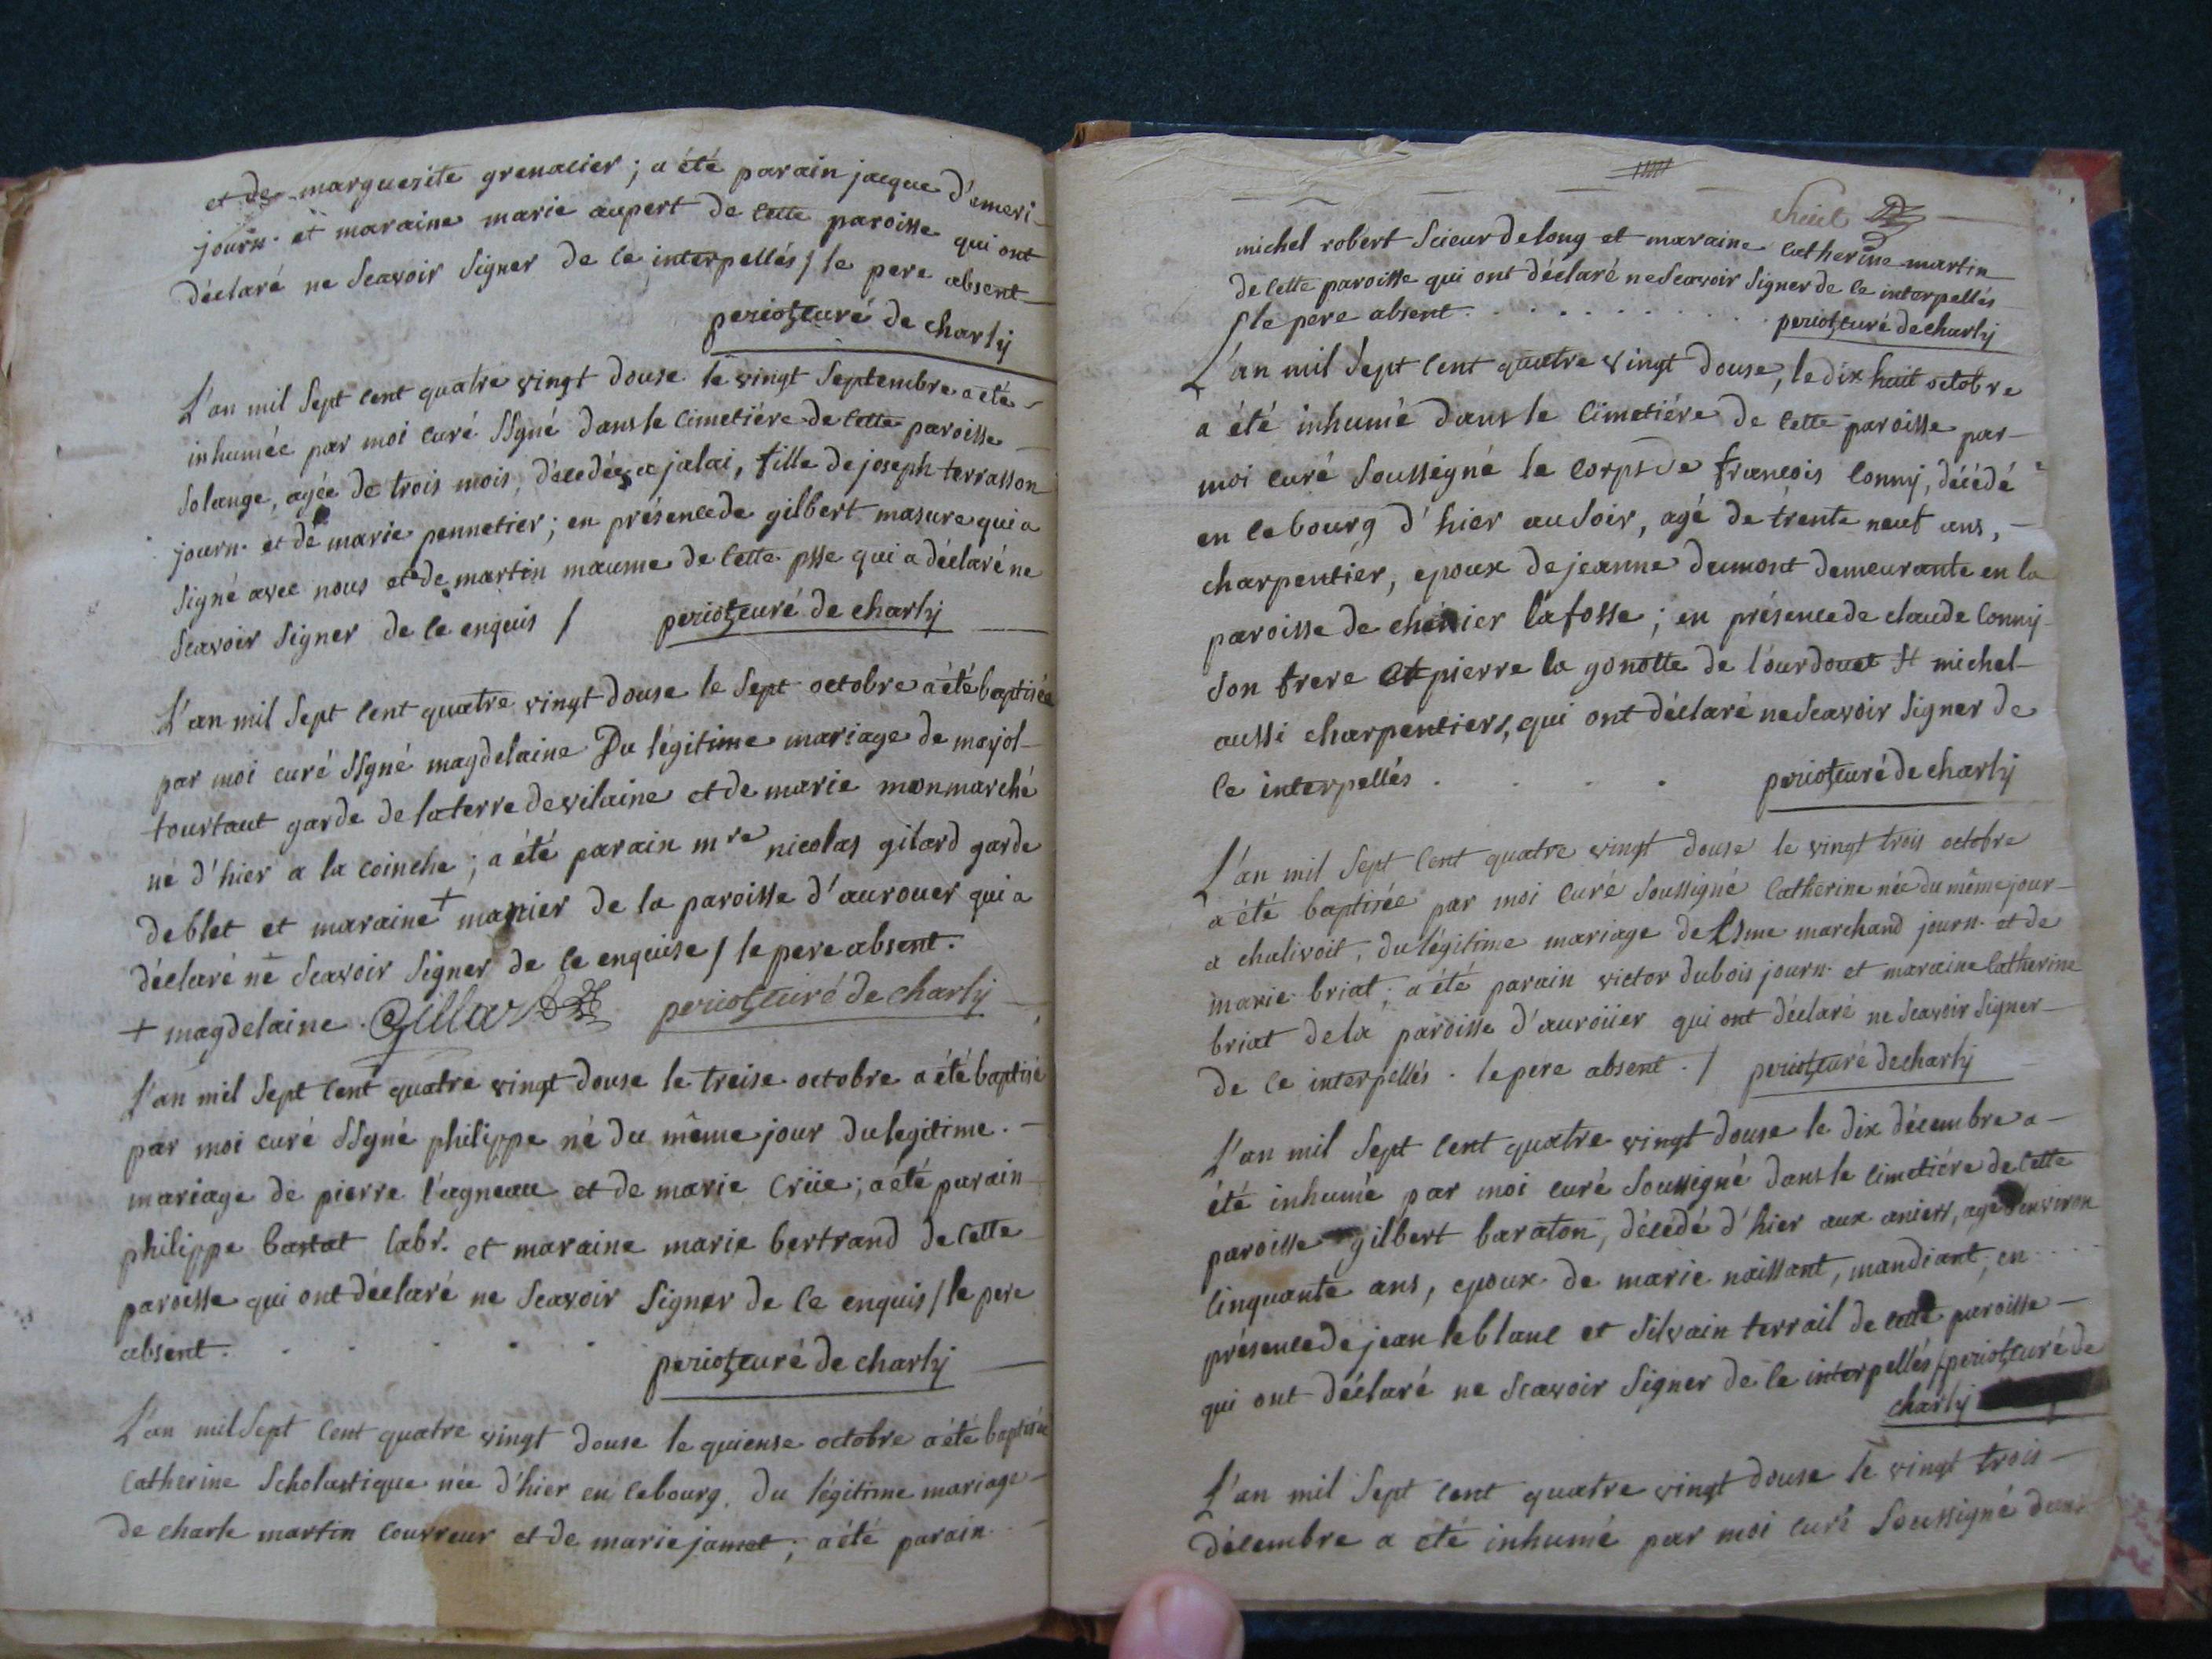 et de marguerite grenacier ; a été parain jacque d'emeri-
journ. et maraine marie aupert de cette paroisse qui ont
déclaré ne scavoir signer de ce interpellés / le pere absent
periot, curé de charly
L'an mil sept cent quatre vingt douse le vingt septembre a eté
inhumée par moi curé ssgné dans le cimetiére de cette paroisse
solange, agée de trois mois, décedée a jalai, fille de joseph terrasson
journ. et de marie pennetier ; en présence de gilbert masure qui a
signé avec nous et de martin maume de cette psse qui a déclaré ne
scavoir signer de ce enquis / periot, curé de charly
L'an mil sept cent quatre vingt douse le sept octobre a été baptisée
par moi curé ssgné magdelaine Du légitime mariage de marjol-
tourtaut garde de la terre de vilaine et de marie monmarché
né d'hier a la coinche ; a été parain mre nicolas gilard garde
de blet et maraine + manier de la paroisse d'aurouer qui a
déclaré ne scavoir signer de ce enquise / le pere absent.
+ magdelaine. Gillard periot, curé de charly
L'an mil sept cent quatre vingt douse le treise octobre a été baptisé
par moi curé ssgné philippe né du même jour du legitime.
mariage de pierre l'agneau et de marie Crüe ; a été parain
philippe bastat labr. et maraine marie bertrand de cette
paroisse qui ont déclaré ne scavoir signer de ce enquis / le pere
absent. . . . . . periot, curé de charly
L'an mil sept cent quatre vingt douse le quiense octobre a été baptisée
catherine scholastique née d'hier en ce bourg, du légitime mariage
de charle martin couvreur et de marie jamet ; a été parain
huit
michel robert scieur de long et maraine catherine martin
de cette paroisse qui ont déclaré ne scavoir signer de ce interpellés
/ le pere absent . . . . . . . . . . periot, curé de charly
L'an mil sept cent quatre vingt douse, le dix huit octobre
a été inhumé dans le cimetiére de cette paroisse par-
moi curé soussigné le corps de francois conny, décédé
en ce bourg d'hier au soir, agé de trente neuf ans,
charpentier, epoux de jeanne dumont demeurante en la
paroisse de chénier lafosse ; en présence de claude conny
son frere et pierre la gonotte de l'ourdouet st michel
aussi charpentiers, qui ont déclaré ne scavoir signer de
ce interpellés . . . . periot, curé de charly
L'an mil sept cent quatre vingt douse le vingt trois octobre
a été baptisée par moi curé soussigné catherine née du même jour
a chalivoit, du légitime mariage de Esme marchand journ. et de
marie briat ; a été parain victor dubois journ. et maraine catherine
briat de la paroisse d'auroüer qui ont déclaré ne scavoir signer
de ce interpellés . le pere absent . / periot, curé de charly
L'an mil sept cent quatre vingt douse le dix décembre a
été inhumé par moi curé soussigné dans le cimetiére de cette
paroisse gilbert baraton, décedé d'hier aux aniers, agé d'environ
cinquante ans, epoux de marie naissant, mandiant, en
présence de jean leblanc et silvain terrail de cette paroisse
qui ont déclaré ne scavoir signer de ce interpellés / periot, curé de
charly
L'an mil sept cent quatre vingt douse le vingt trois
décembre a eté inhumé par moi curé soussigné dans